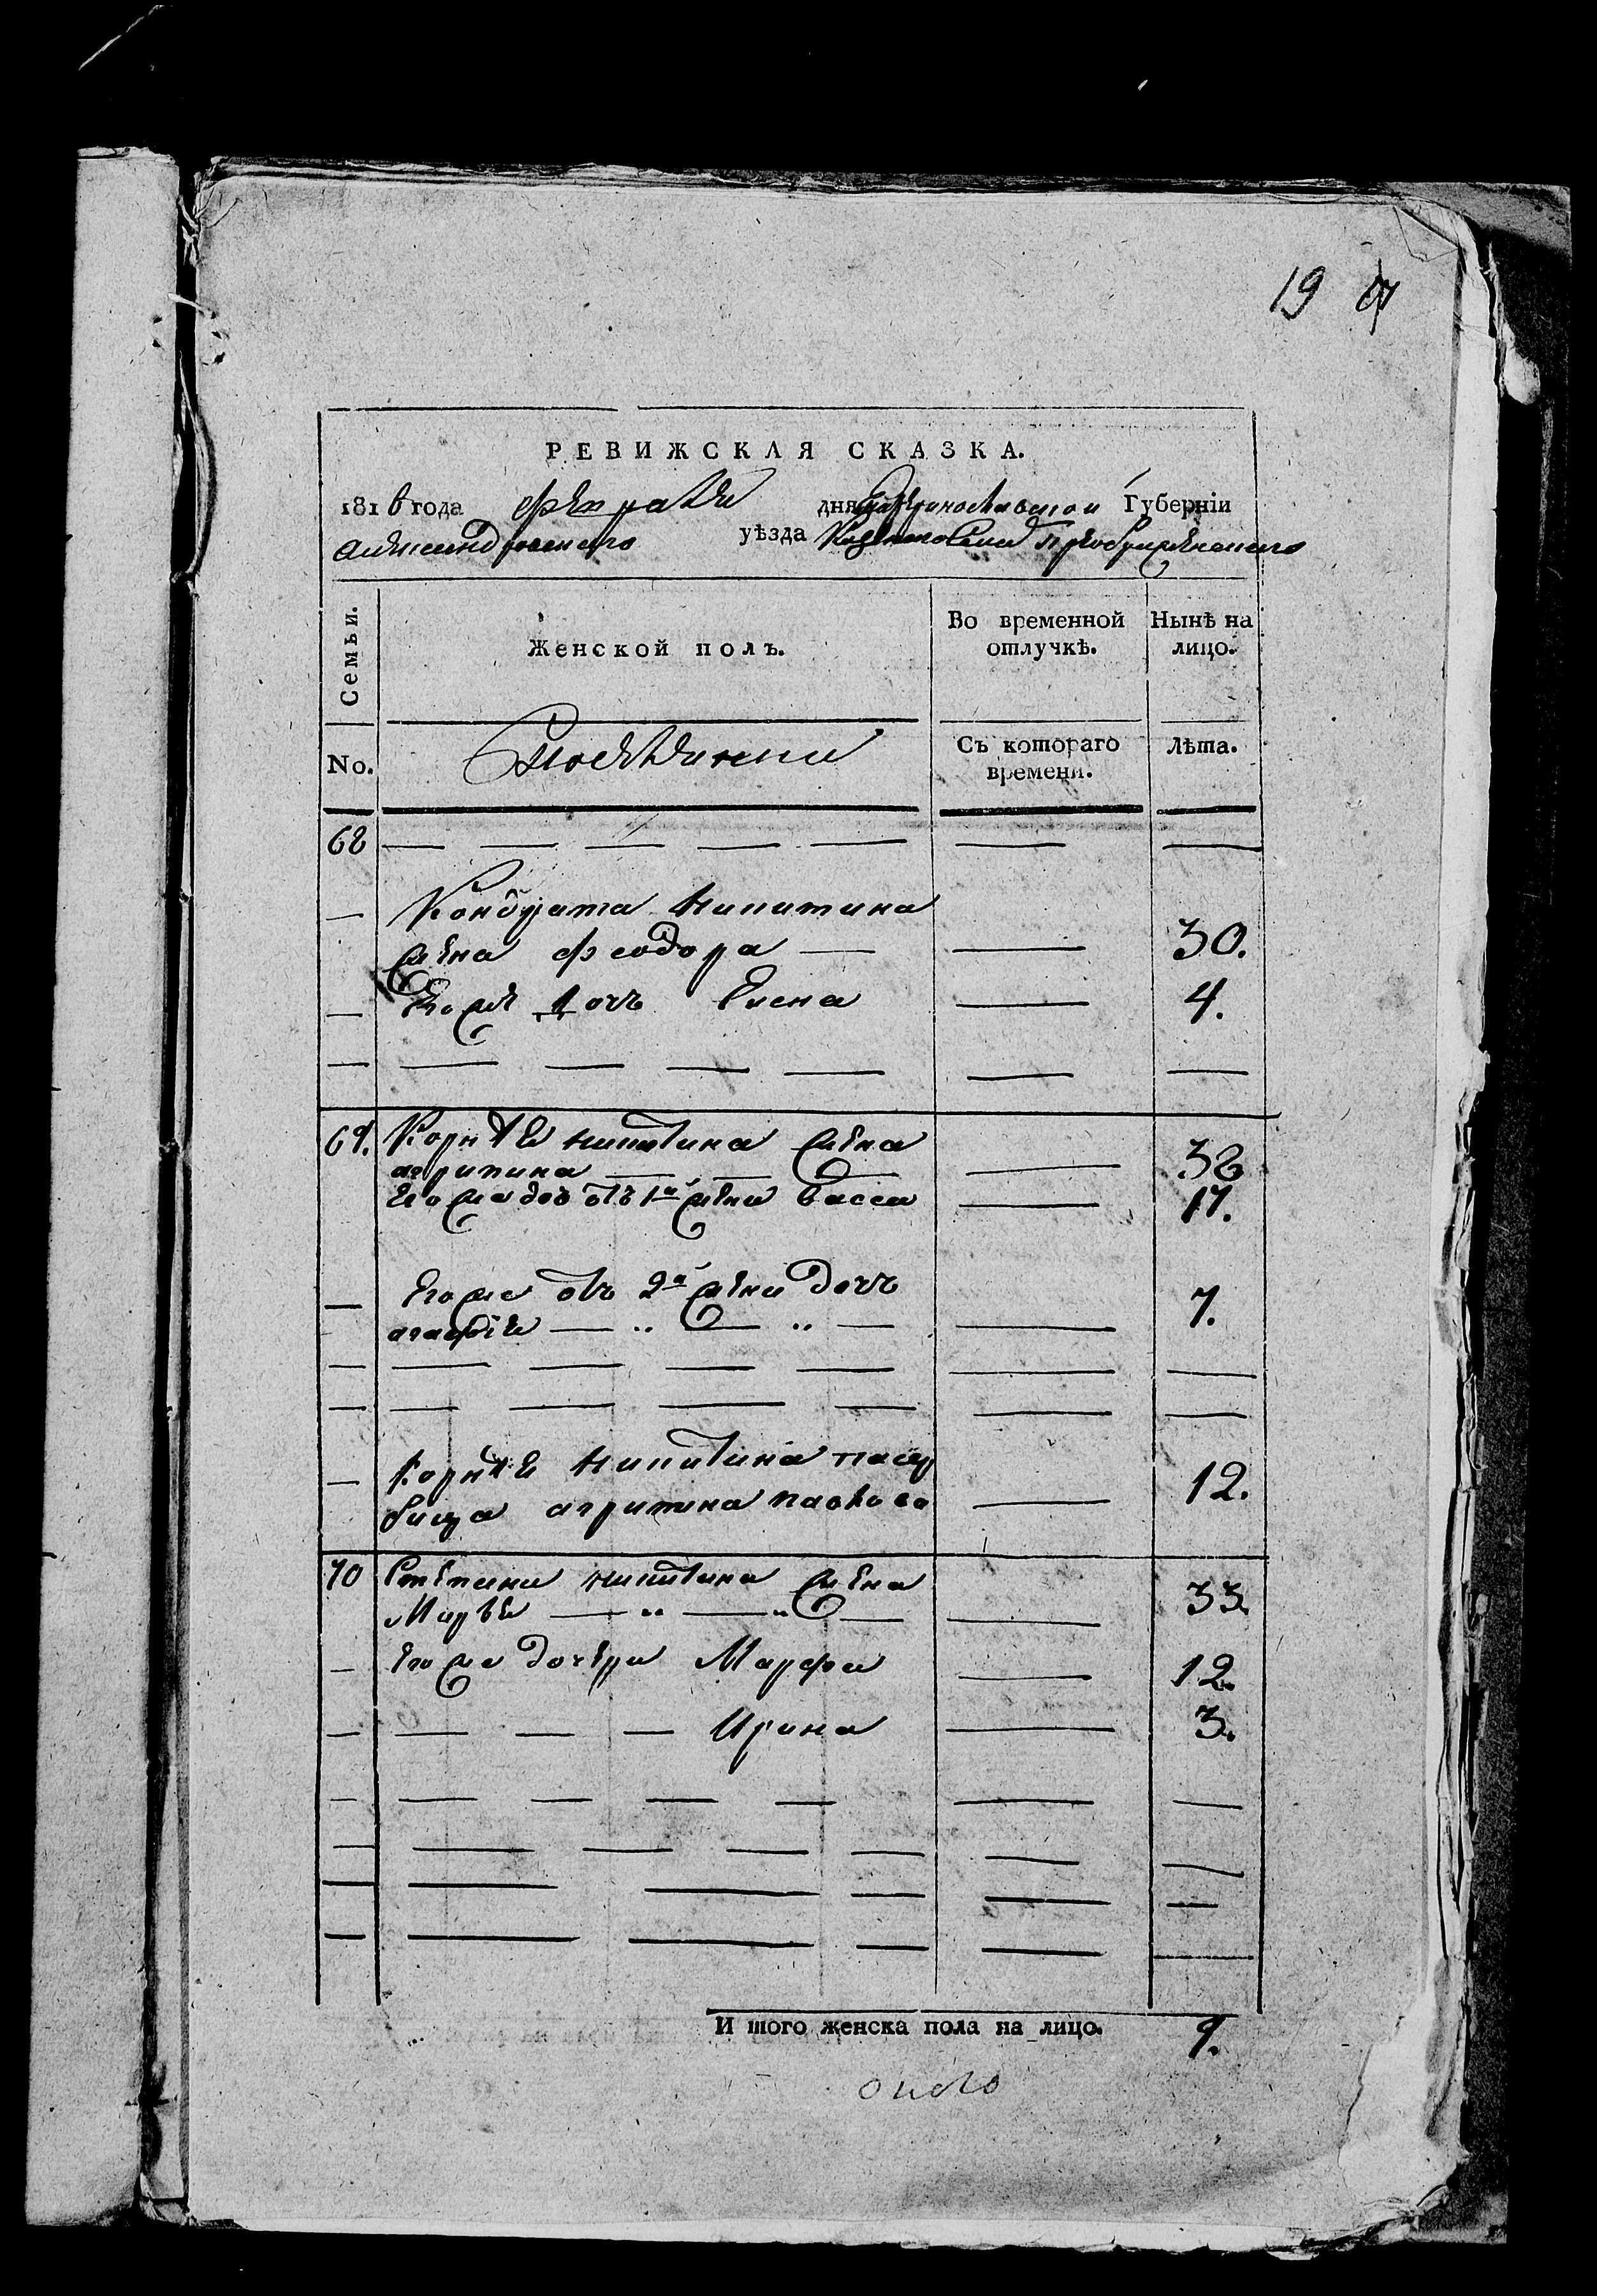 19
РЕВИЖСКАЯ СКАЗКА.
1816 года февраля дня Екатеринославской Губерніи
александровскаго уѣзда Преображенскаго
Семьи.
Женской полъ.
Во временной отлучкѣ.
Нынѣ на лицо.
No.
Съ котораго времени.
Лѣта.
68
Кондрата никитина
жена феодора 30.
Егоже дочь Елена 4.
69. Корнѣя никитина жена
агрипина 38
Егоже доч отъ 1й жены Васса 17.
Егоже отъ 2й жены дочь
агафія 7.
Корнѣя никитина падче
рица агрипина павлова 12.
70 Степана никитина жена
Марья 33.
Егоже дочери Марфа 12.
Ирина 3.
И того женска пола на лицо. 9.